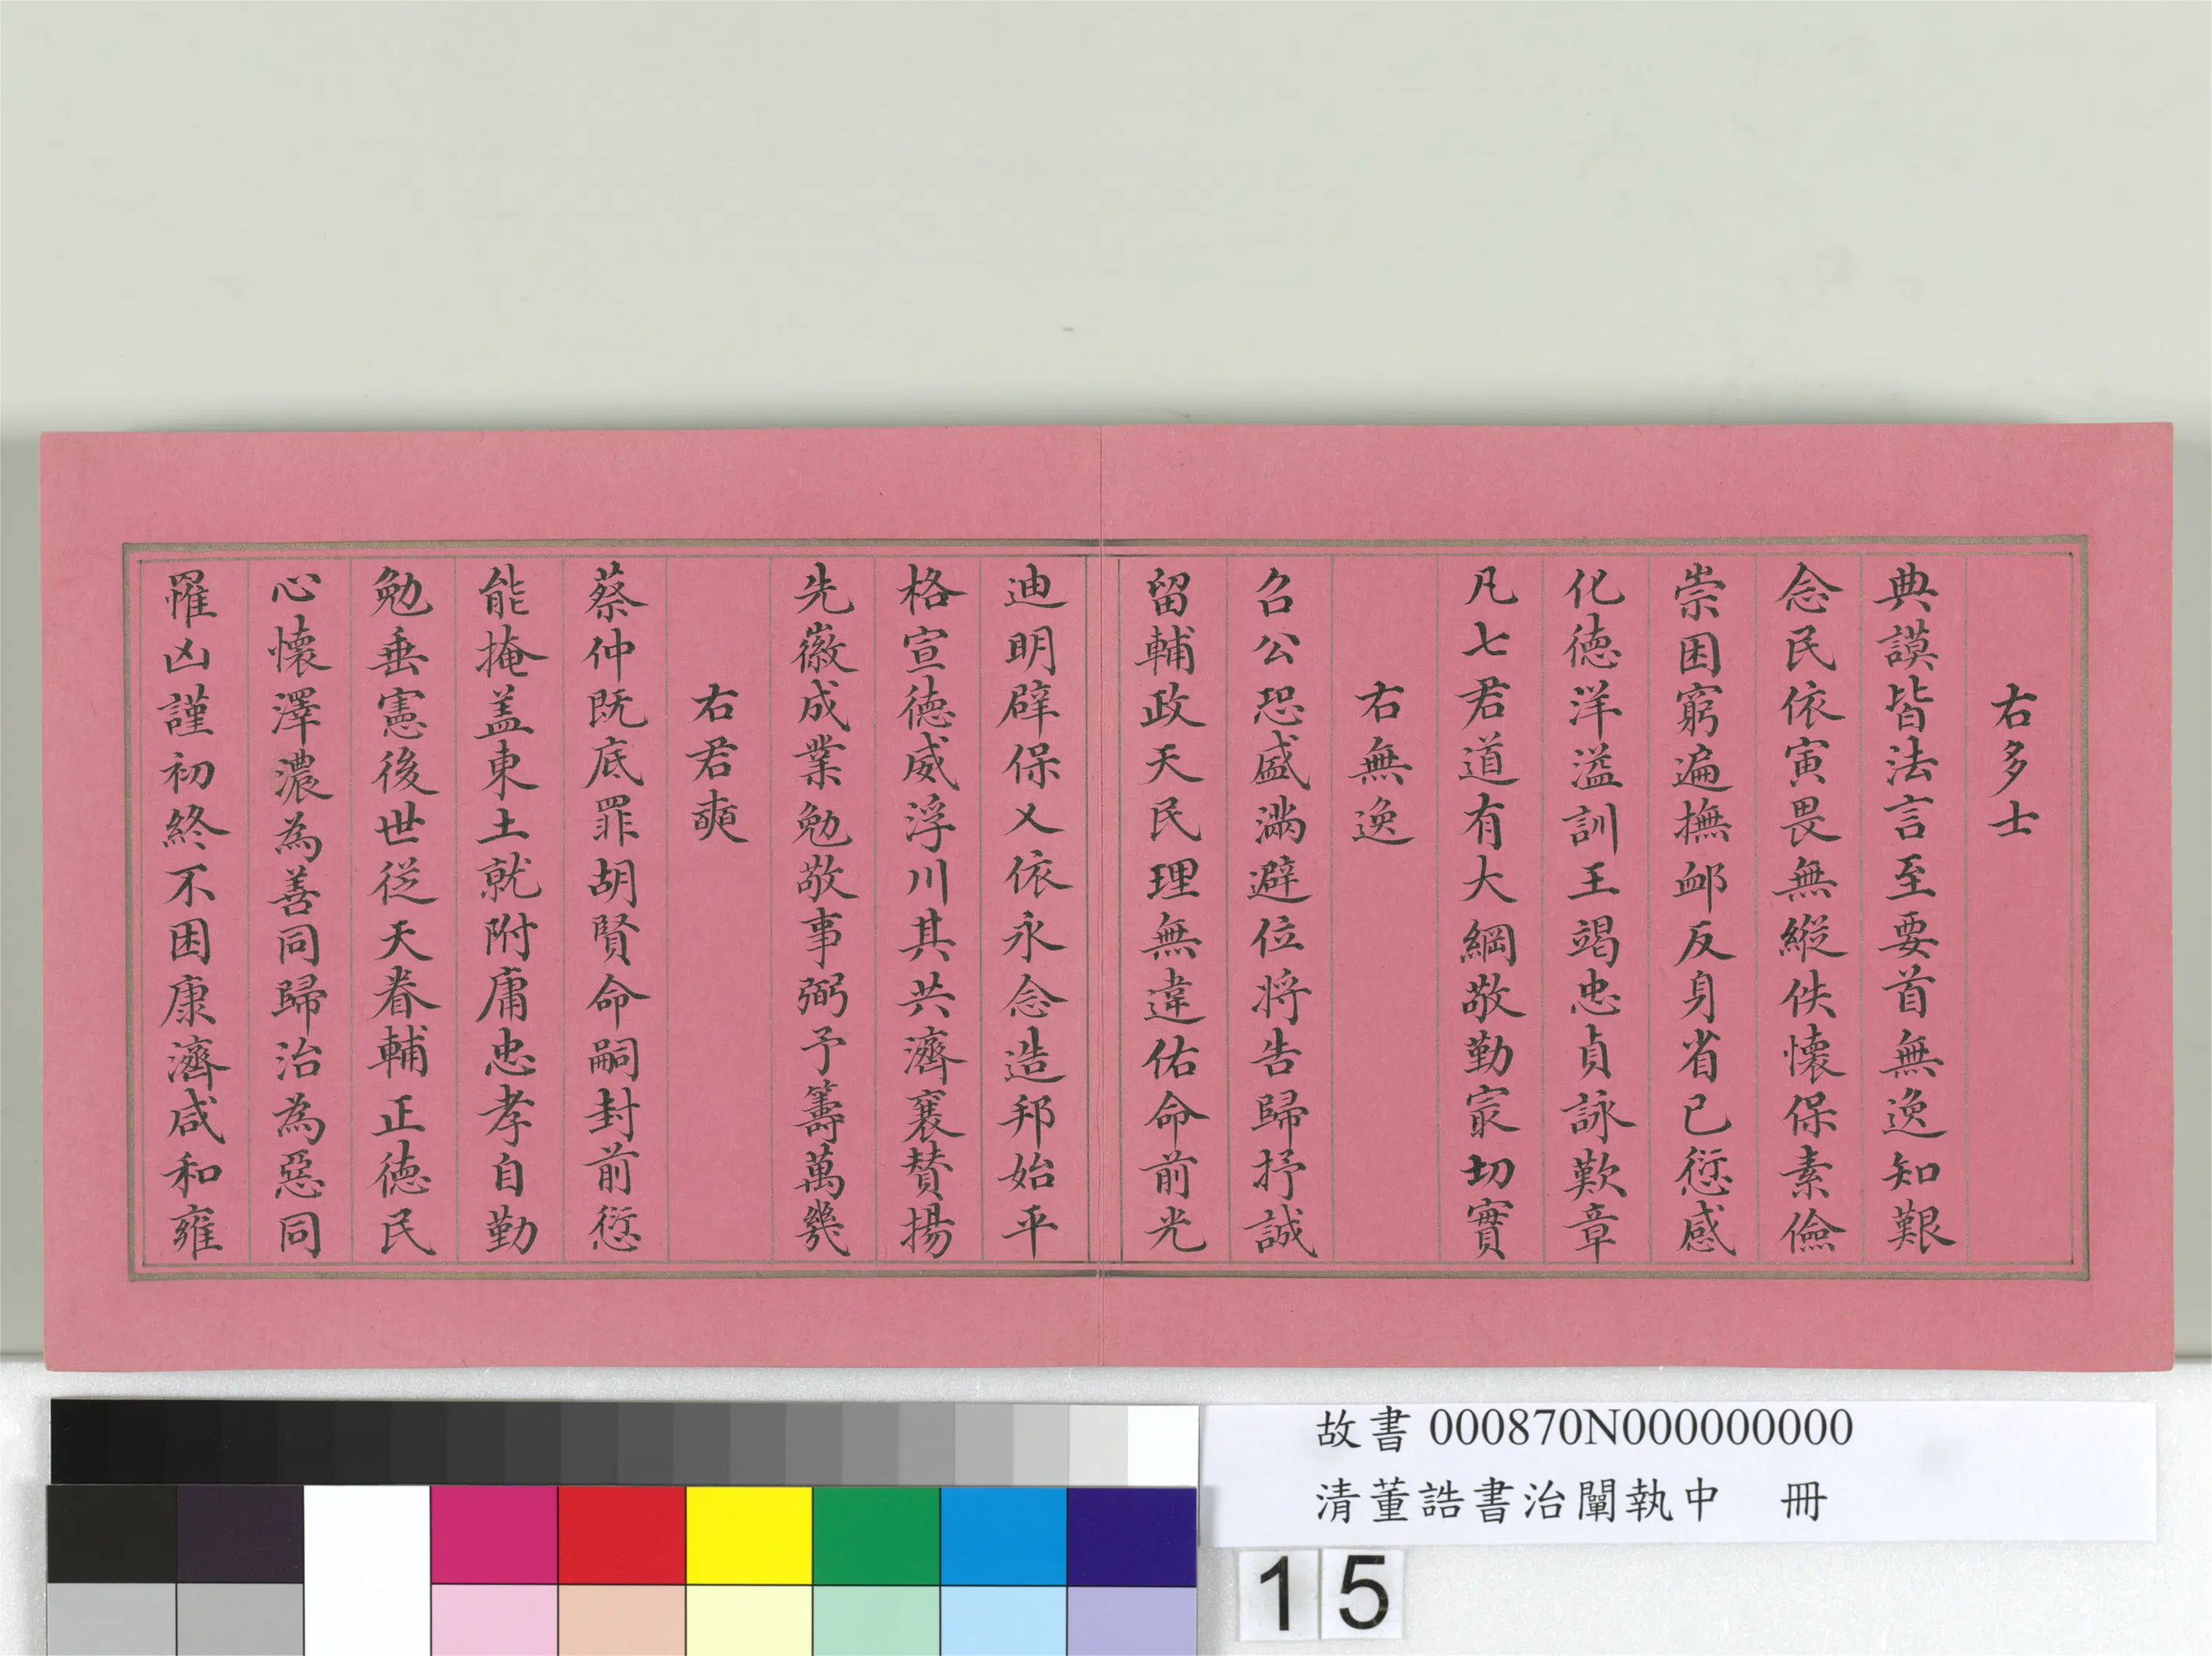 右多士
典謨皆法言至要首無逸知艱
念民依寅畏無縱佚懷保素儉
崇困窮遍撫卹反身省已愆感
化德洋溢訓王竭忠貞詠歎章
凡七君道有大綱敬勤㝡切實
右無逸
召公恐盛滿避位將告歸抒誠
留輔政天民理無違佑命前光
迪明辟保乂依永念造邦始平
格宣德威浮川其共濟襄贊揚
先徽成業勉敬事弼予籌萬幾
右君奭
蔡仲既底罪胡賢命嗣封前愆
能掩盖東土就附庸忠孝自勤
勉垂憲後世從天眷輔正德民
心懷澤濃為善同歸治為惡同
罹凶謹初終不困康濟咸和雍
故書000870N000000000
清董誥書治闡執中 冊
15